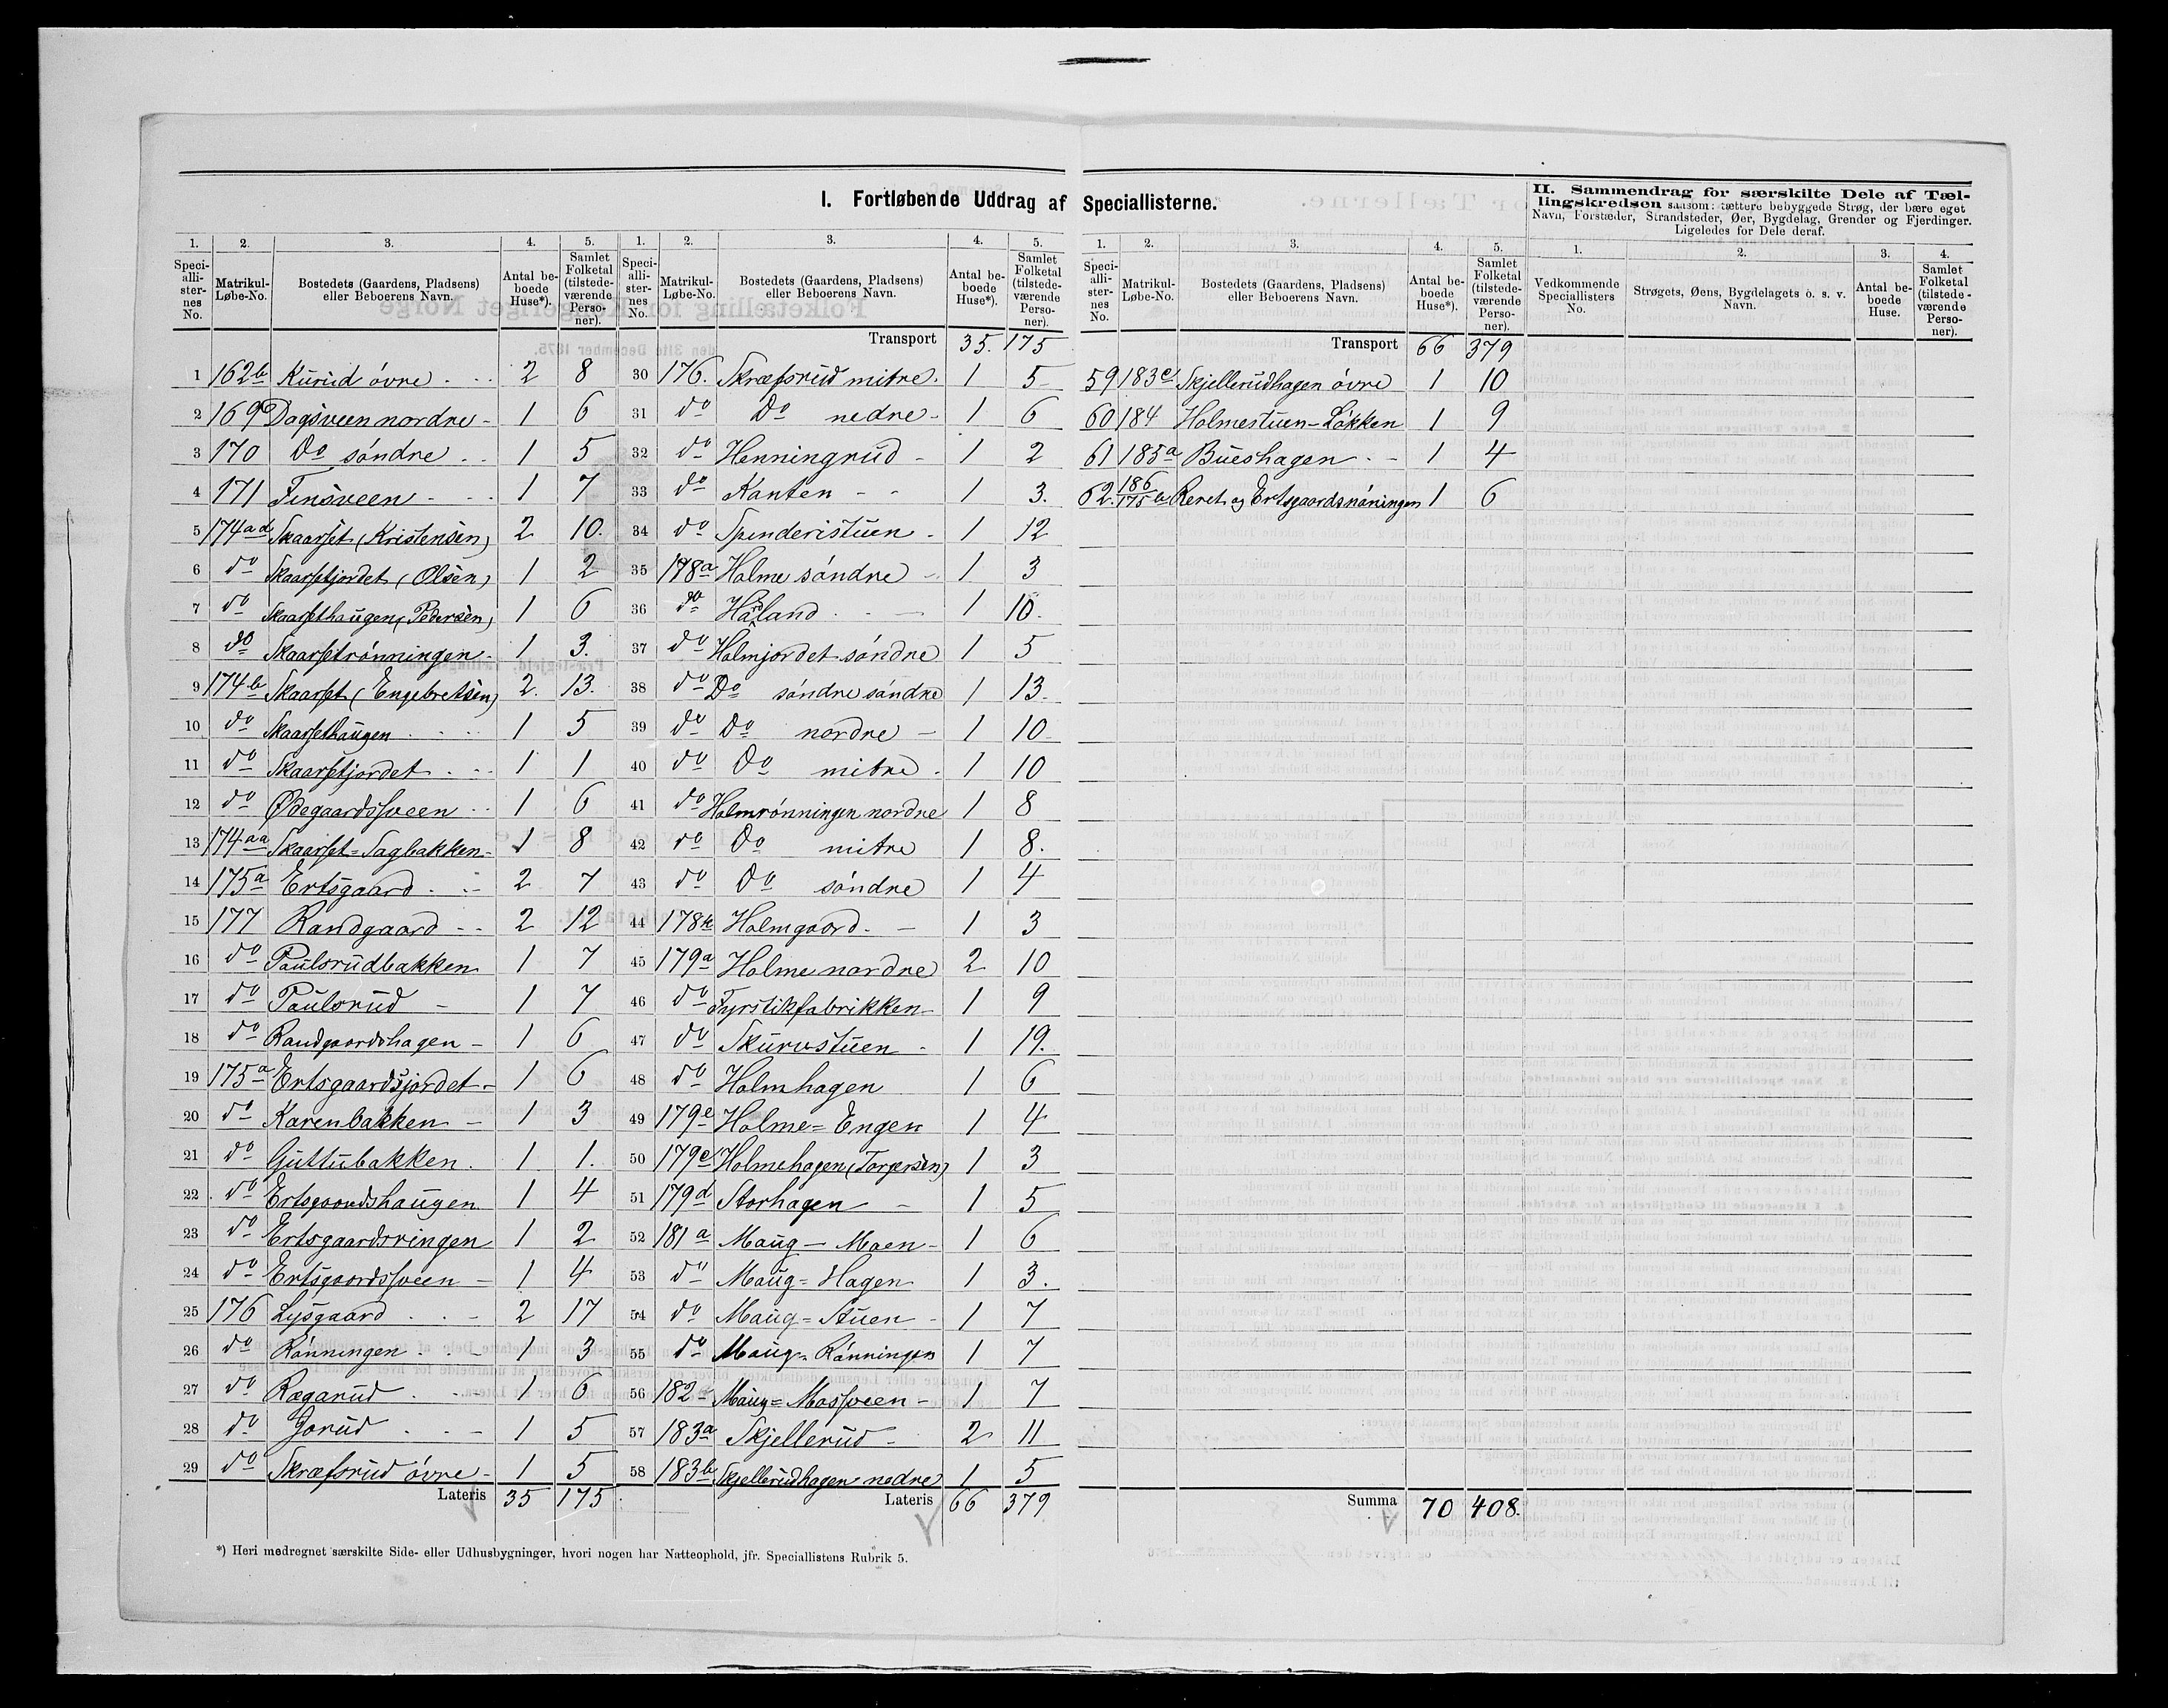 I. Fortløbende Uddrag af Speciallisterne.
1. 2. 3. 4. 5.
Speciallisternes No. Matrikul-Løbe-No. Bostedets (Gaardens, Pladsens) eller Beboerens Navn. Antal beboede Huse*). Samlet Folketal (tilstedeværende Personer).
1 162b Kurud óvre 2 8
2 169 Dagsveen nordre 1 6
3 170 Do sóndre 1 5
4 171 Finsveen 1 7
5 174ad Skaarset (Kristensen) 2 10.
6 do Skaarsetjordet (Olsen) 1 2
7 do Skaarsethaugen (Pedersen) 1 6
8 do Skaarsetrónningen 1 3.
9 174b Skaarset (Engebretsen) 2. 13.
10 do Skaarsethaugen 1 5
11 do Skaarsetjordet 1 1
12 do Ødegaardssveen 1 6
13 174aa Skaarset=Sagbakken 1 8
14 175a Ertsgaard 2 7
15 177 Randgaard 2 12
16 do Paulsrudbakken 1 7
17 do Paulsrud 1 7
18 do Randgaardshagen 1 6
19 175a Ertsgaardsjordet 1 6
20 do Karenbakken 1 3
21 do Guttubakken. 1 1.
22 do Ertsgaardshaugen 1 4
23 do Ertsgaardsringen 1 2
24 do Ertsgaardssveen 1 4
25 176 Lysgaard 2 17
26 do Rónningen 1 3
27 do Rægarud 1 6
28 do Jorud 1 5
29 do Skræfsrud óvre 1 5
Lateris 35 175
1. 2. 3. 4. 5.
Speciallisternes No. Matrikul-Løbe-No. Bostedets (Gaardens, Pladsens) eller Beboerens Navn. Antal beboede Huse*). Samlet Folketal (tilstedeværende Personer).
Transport 35. 175
30 176. Skræfsrud mitre. 1 5
31 do Do nedre 1 6
32 do Henningrud 1 2
33 do Kanten 1 3.
34 do Spenderistuen 1 12
35 178a Holme sóndre 1 3
36 do Haaland 1 10.
37 do Holmjordet sóndre 1 5
38 do Do sóndre sóndre 1 13.
39 do Do nordre 1 10
40 do Do mitre 1 10
41 do Holmrónningen nordre 1 8
42 do Do mitre 1 8.
43 do Do sóndre 1 4
44 178k Holmgaard. 1 3
45 179a Holme nordre 2 10
46 do Fyrstikfabrikken 1 9
47 do Skurustuen 1 19.
48 do Holmhagen 1 6
49 179e Holme=Engen 1 4
50 179c Holmehagen (Torgersen) 1 3
51 179d Storhagen 1 5
52 181a Maug–Moen 1 6
53 do Maug=Hagen 1 3.
54 do Maug=Stuen 1 7
55 do Maug=Rónningen 1 7
56 182 Maug=Mossveen 1 7
57 183a Skjellerud 2 11
58 183b Skjellerudhagen nedre 1 5
Lateris 66 379
1. 2. 3. 4. 5.
Speciallisternes No. Matrikul-Løbe-No. Bostedets (Gaardens, Pladsens) eller Beboerens Navn. Antal beboede Huse*). Samlet Folketal (tilstedeværende Personer).
Transport 66 379
59 183c Skjellerudhagen óvre 1 10
60 184 Holmestuen–Lókken 1 9
61 185a Bueshagen 1 4
62. 186/175a og Ertsgaardsnóningen 1 6
Summa 70 408.
II. Sammendrag for særskilte Dele af Tællingskredsen saasom: tættere bebyggede Strøg, der bære eget Navn, Forstæder, Strandsteder, Øer, Bygdelag, Grender og Fjerdinger. Ligeledes for Dele deraf.
1. 2. 3. 4.
Vedkommende Speciallisters No. Strøgets, Øens, Bygdelagets o. s. v. Navn. Antal beboede Huse. Samlet Folketal (tilstedeværende Personer).
*) Heri medregnet særskilte Side- eller Udhusbygninger, hvori nogen har Natteophold, jfr. Speciallistens Rubrik 5.